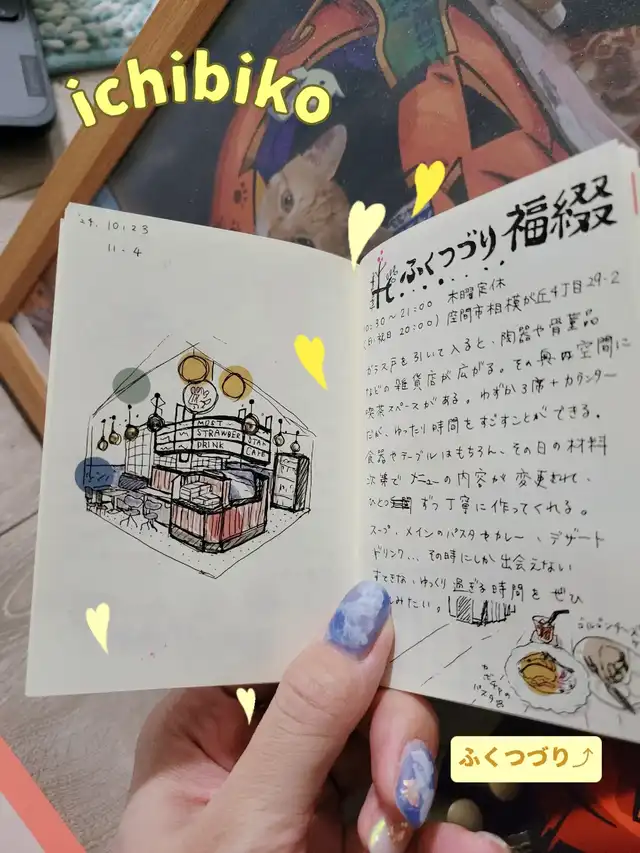 ichibiko
'24. 10.23
11.4
MOST
STRAWBER STAR
DRINK CAFE
ふくつづり 福綴
10:30〜21:00 木曜定休
(日・祝日 20:00) 座間市相模が丘4丁目29-2
ガラス戸を引いて入ると、陶器や骨董品
などの雑貨店が広がる。その奥の空間に
喫茶スペースがある。わずか3席+カウンター
だが、ゆったり時間をすごすことができる。
食器やテーブルはもちろん、その日の材料
次第でメニューの内容が変更されて、
ひとつ ずつ丁寧に作ってくれる。
スープ、メインのパスタやカレー、デザート
ドリンク... その時にしか出会えない
すてきな、ゆっくり過ぎる時間をぜひ
しみたい。
かぼちゃの
パスタ
ふくつづり